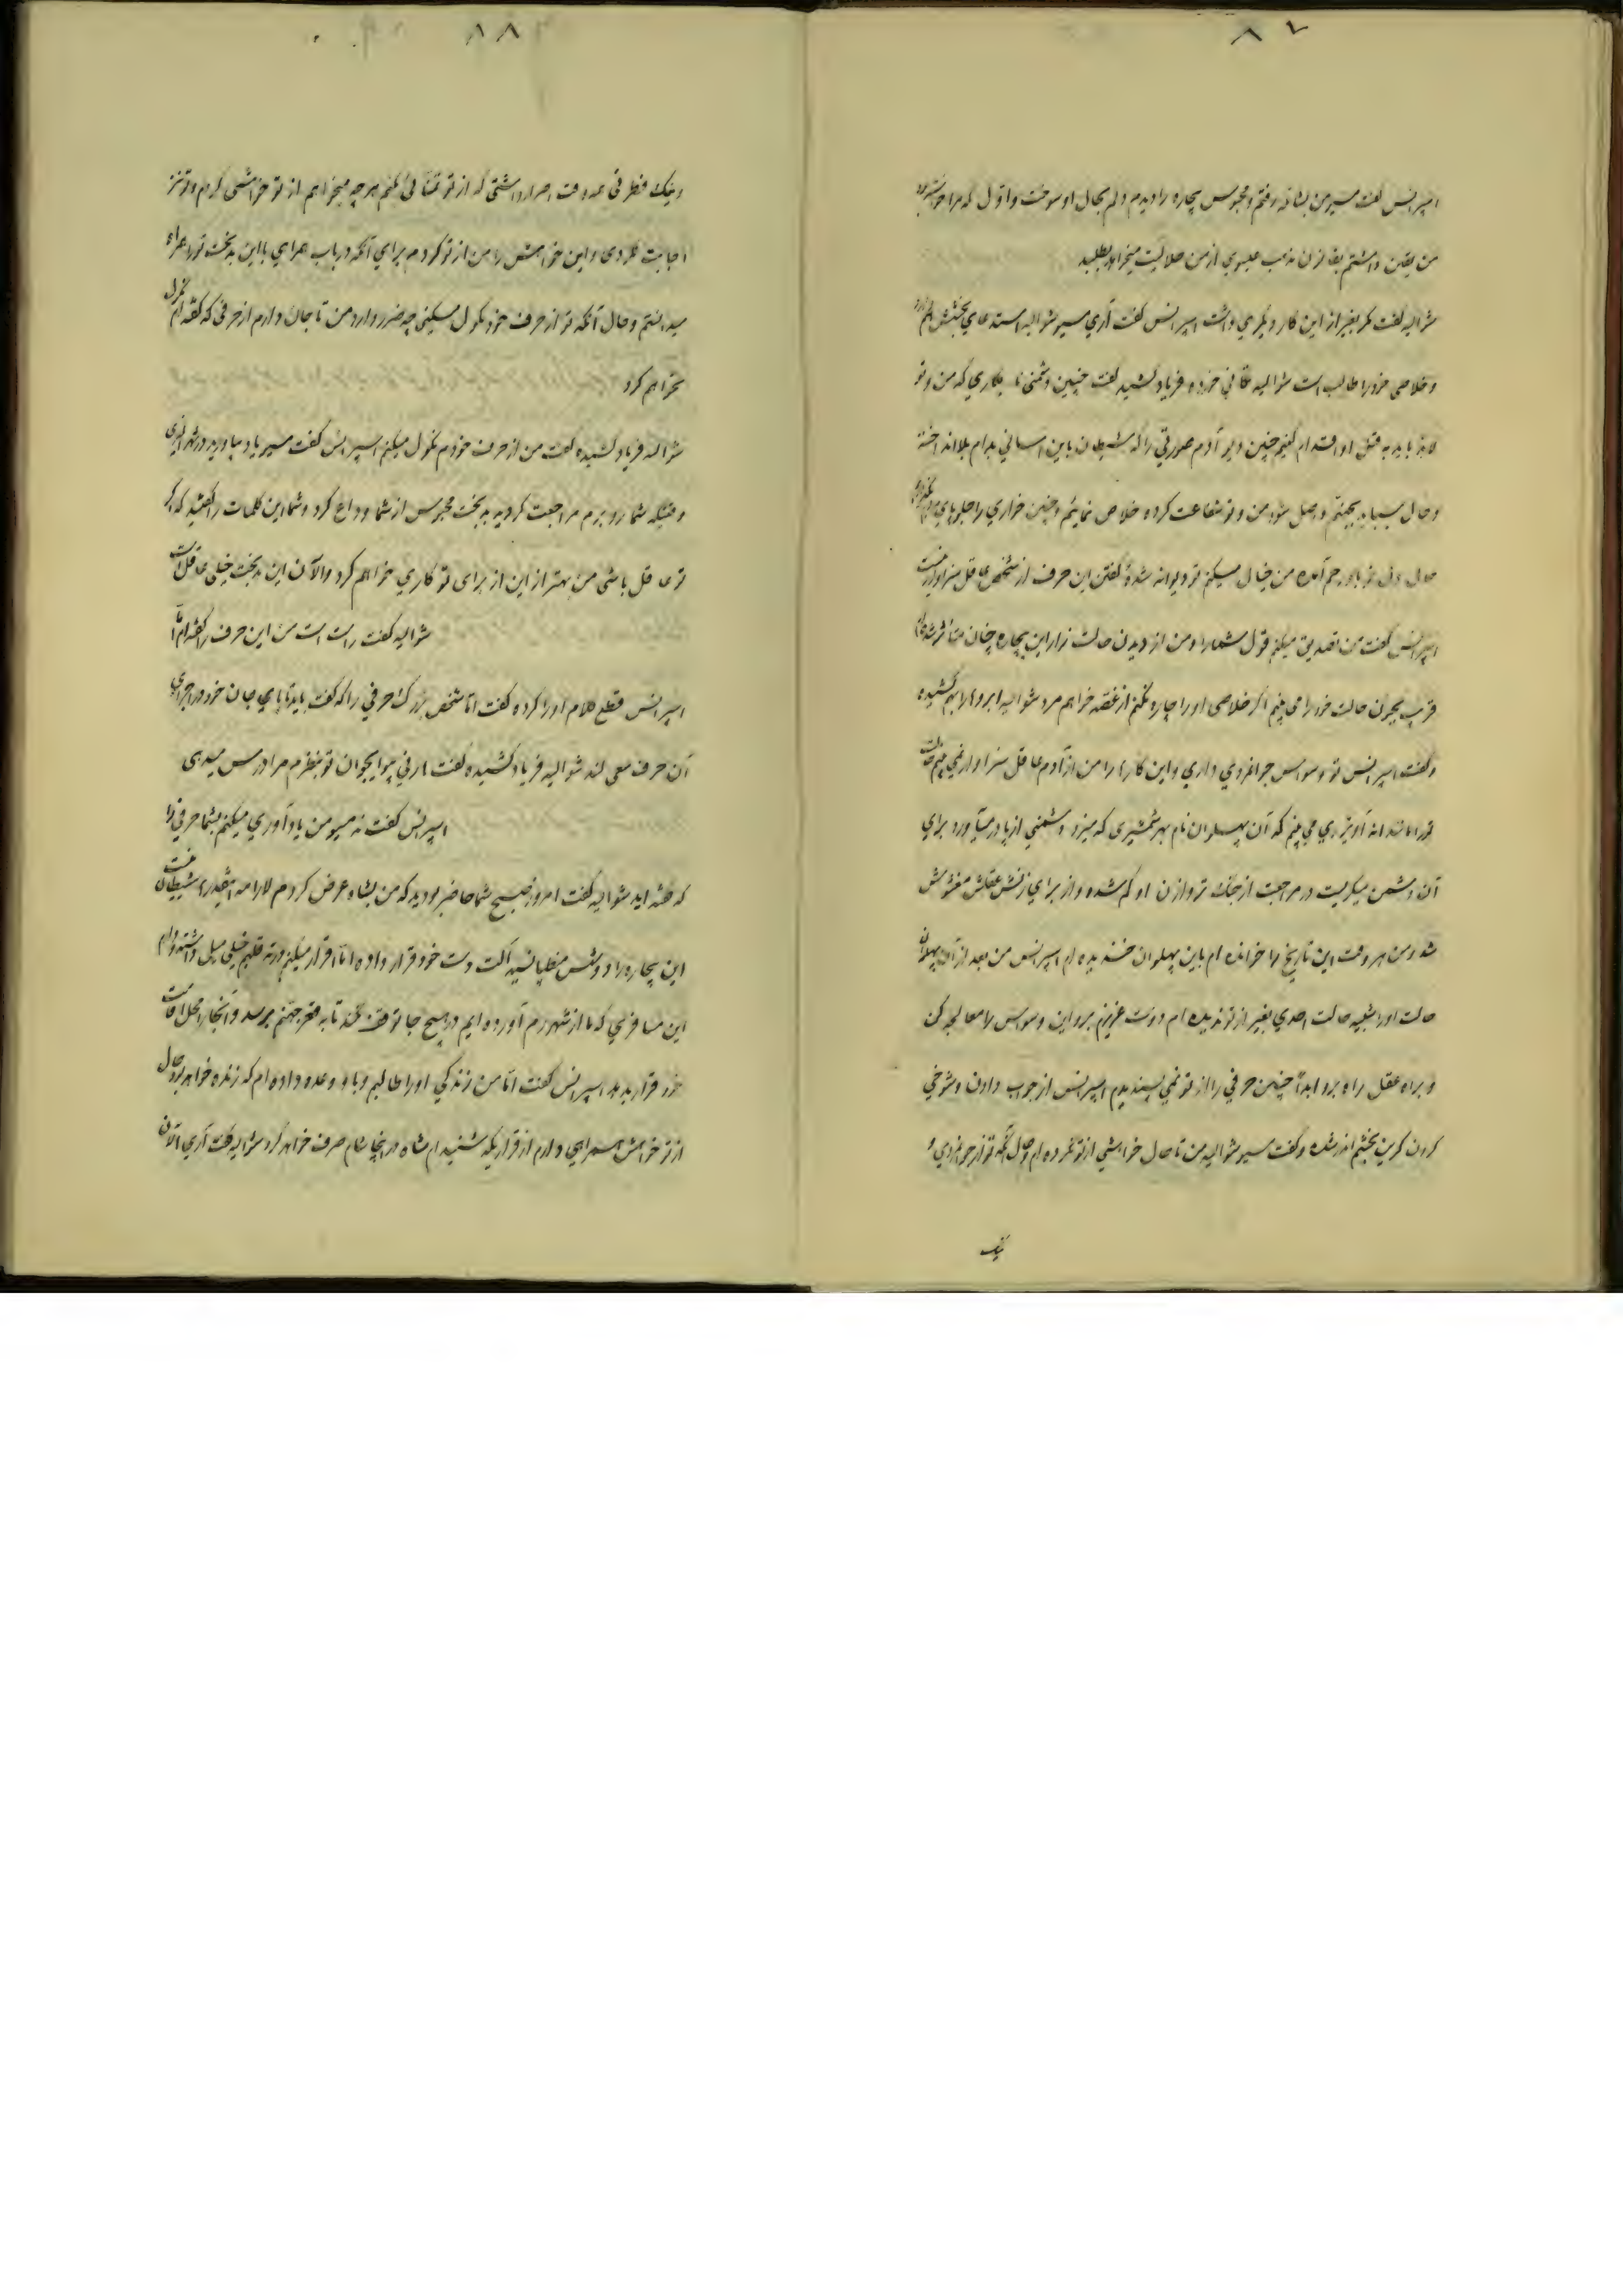 ۸۷
اسپرانس گفت مسیو من بشاتله رفتم و محبوس بیچاره را دیدم دلم بحال او سوخت و اول که مرا خواسته بود
من یقین داشتم بقانون مذهب عیسوی از من حلالیت میخواهد بطلبد
شوالیه گفت مگر بغیر از این کار دیگری داشت اسپرانس گفت آری مسیو شوالیه استدعای بخشش
و خلاصی خود را طالب است شوالیه تکانی خورده فریاد کشید گفت چنین دشمنی نابکاری که من و تو
لابد باید به قتل او اقدام کنیم چنین دیو آدم صورتی را که شیطان باین آسانی بدام بلا انداخته
و حال بباید بجهنم واصل شود من و تو شفاعت کرده خلاص نمائیم و چنین خواری را جلو پای مردم
حال دل تو باو رحم آمده من خیال میکنم تو دیوانه شدهٔ گفتن این حرف از شخص عاقل سزاوار نیست
اسپرانس گفت من تصدیق میکنم قول شما را و من از دیدن حالت زار این بیچاره چنان متأثر شدم
قریب بجنون حالت خود را می بینم اگر خلاصی او را چاره نکنم از غصه خواهم مرد شوالیه ابروها را بهم کشیده
و گفت اسپرانس تو وسواس جوانمردی داری و این کارها را من از آدم عاقل سزاوار نمی بینم حالت
تو را مانند می بینم که آن پهلوان نام بهر شمشیری که میزد و دشمنی از پا در میآورد برای
آن دشمن میگریست در مراجعت از جنگ توازن او گم شده و از برای زنش عقلش مغشوش
شد و من هر وقت این تاریخ را خوانده ام باین پهلوان خندیده ام اسپرانس من بعد از آن پهلوان
حالت او را شبیه حالت احدی بغیر از تو ندیده ام دوست عزیزم برو این وسواس را معالجه کن
و براه عقل راه برو ابداً چنین حرفی را از تو نمی پسندیدم اسپرانس از جواب دادن و شوخی
کردن کرین بخشم اندر شده و گفت مسیو شوالیه من تا حال خواهشی از تو نکرده ام و حال آنکه تو از جوانمردی و
نیک
۸۸
و نیک فطرتی همه وقت اصرار داشتی که از تو تمنائی کنم هر چه میخواهم از تو خواهشی کردم و تو نیز
اجابت کردی و این خواهش را من از تو کردم برای آنکه در باب همراهی با این بدبخت تو را همراه
میدانستم و حال آنکه تو از حرف خود نکول میکنی چه ضرر دارد من تا جان دارم از حرفی که گفته ام نکول
نخواهم کرد
شوالیه فریاد کشیده گفت من از حرف خودم نکول میکنم اسپرانس گفت مسیو یاد بیاورید در شهر لیون
وقتیکه شما رو بروم مراجعت کردید بدبخت محبوس از شما وداع کرد و شما این کلمات را گفتید که اگر
تو عاقل باشی من بهتر از این از برای تو کاری خواهم کرد و الآن این بدبخت خیلی عاقل است
شوالیه گفت راست است من این حرف را گفته ام اما
اسپرانس قطع کلام او را کرده گفت اما شخص بزرگ حرفی را که گفت باید تا پای جان خود در اجرای
آن حرف سعی کند شوالیه فریاد کشیده گفت مارفی پیو ایجوان تو بنظرم مرا درس میدهی
اسپرانس گفت نه مسیو من یادآوری میکنم بشما حرفی را
که گفته اید شوالیه گفت امروز صبح شما حاضر بودید که من بشاه عرض کردم لارامه اینقدرها شیطان نیست
این بیچاره را دوشس منطپانسیه آلت دست خود قرار داده اما اقرار میکنم ورنه قلبم خیلی میل داشته و دارم
این مسافری که ما از شهر رم آورده ایم در هیچ جا توقف نکند تا به قعر جهنم برسد و آنجا را محل اقامت
خود قرار بدهد اسپرانس گفت اما من زندگی او را طالبم و باو وعده داده ام که زنده خواهد بود حال
از تو خواهش همراهی دارم از قراریکه شنیده ام شاه در اینجا شام صرف خواهد کرد شوالیه گفت آری الآن